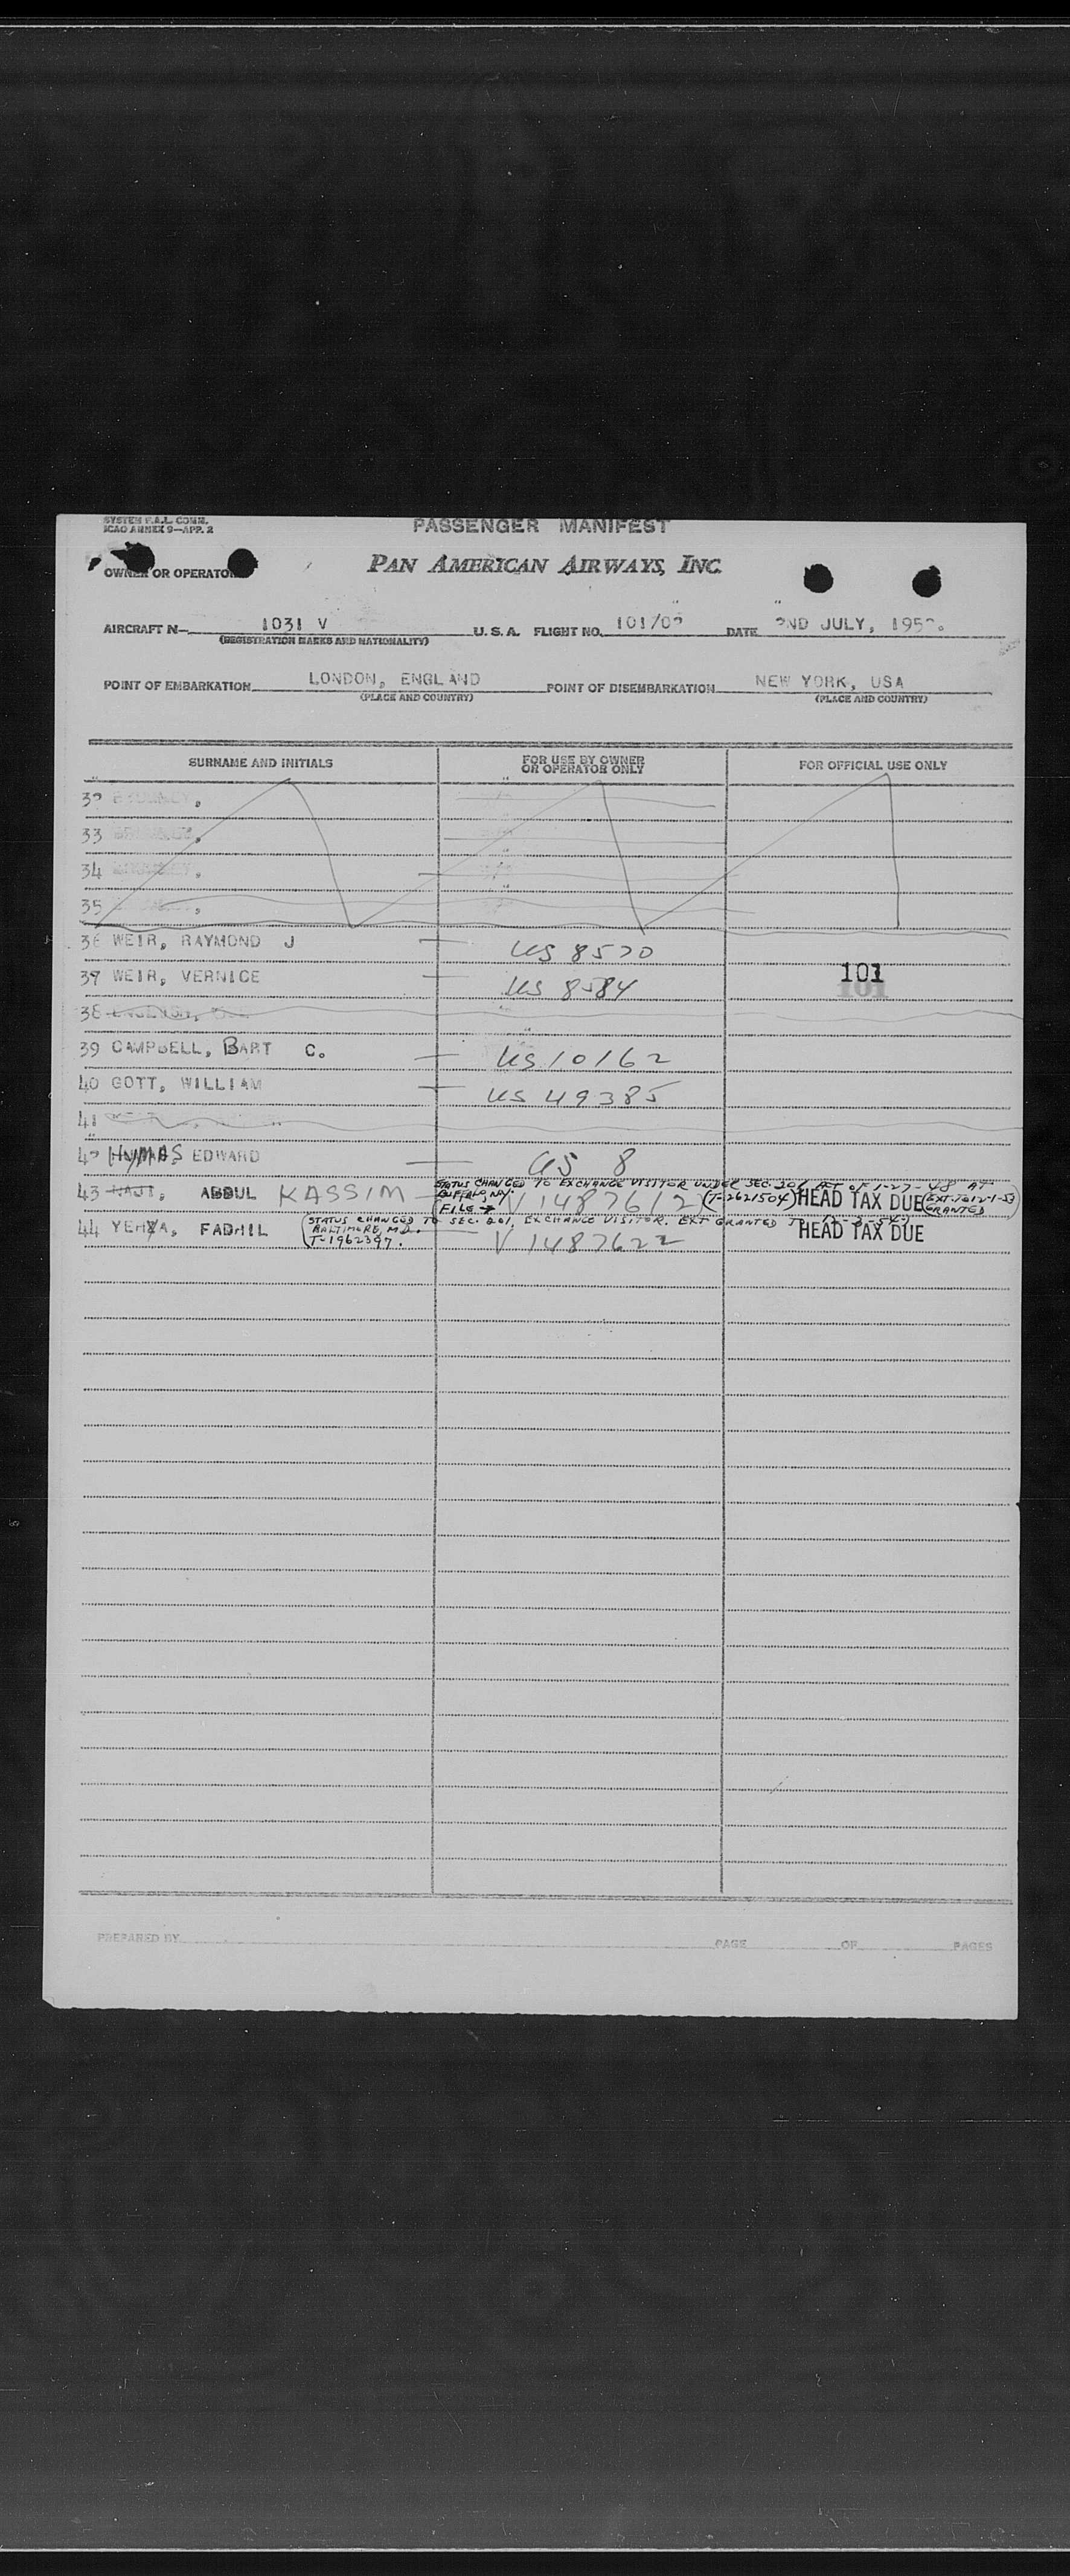 SYSTEM F.A.L. COMM.
ICAO ANNEX 9—APP. 2
PASSENGER MANIFEST
OWNER OR OPERATOR
PAN AMERICAN AIRWAYS, INC.
AIRCRAFT N— 1031 V U.S.A. FLIGHT NO. 101/02 DATE 2ND JULY, 1952.
(REGISTRATION MARKS AND NATIONALITY)
POINT OF EMBARKATION LONDON, ENGLAND POINT OF DISEMBARKATION NEW YORK, USA
(PLACE AND COUNTRY) (PLACE AND COUNTRY)
SURNAME AND INITIALS FOR USE BY OWNER OR OPERATOR ONLY FOR OFFICIAL USE ONLY
32
33
34
35
36 WEIR, RAYMOND J US 8570
37 WEIR, VERNICE US 8584 101
38
39 CAMPBELL, BART C. US 10162
40 GOTT, WILLIAM US 49385
41
42 HYMAS EDWARD US 8
STATUS CHANGED TO EXCHANGE VISITOR UNDER SEC. 201 ACT OF 1-27-48 AT
BUFFALO, N.Y.
43 HAJI, ABBUL KASSIM FILE → V 1487612 (T-2621504) HEAD TAX DUE (EXT. TO 12-1-53 GRANTED)
44 YEHYA, FADHIL (STATUS CHANGED TO SEC. 201, EXCHANGE VISITOR. EXT GRANTED
BALTIMORE, MD.
T-1962397. V 1487622 HEAD TAX DUE
PREPARED BY PAGE OF PAGES